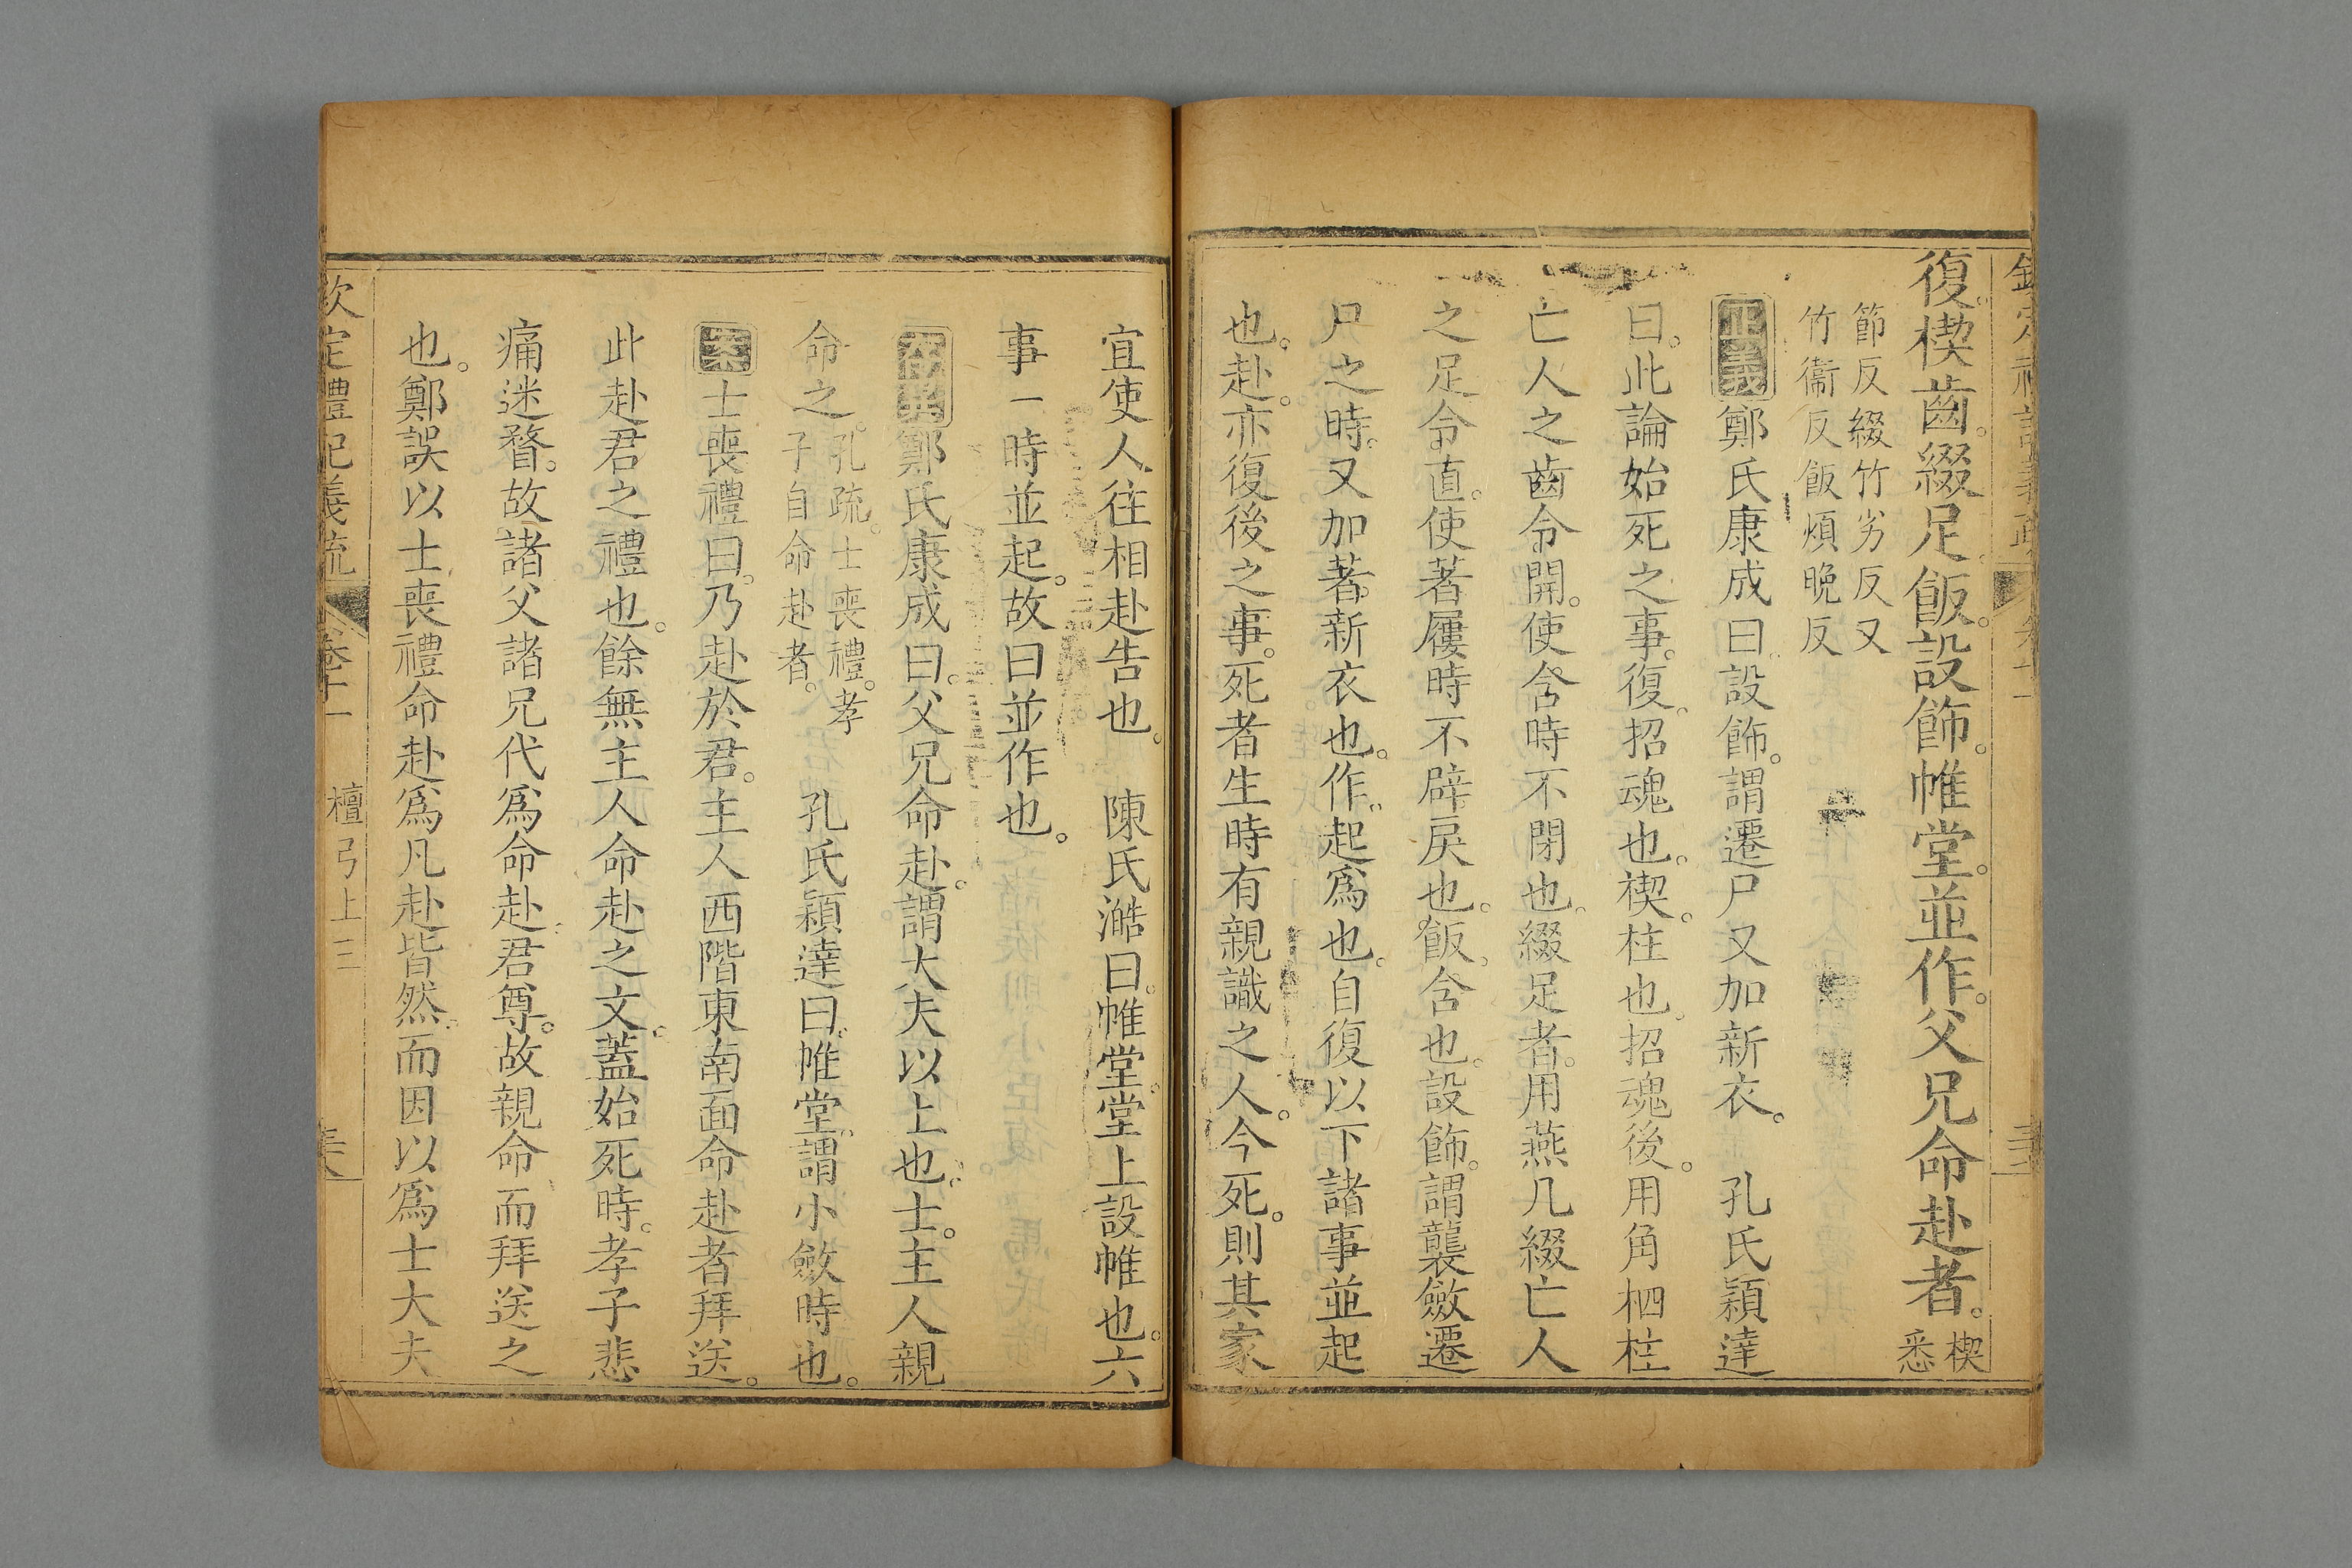 復。楔齒。綴足。飯。設飾。帷堂。並作。父兄命赴者。楔悉
節反綴竹劣反又
竹衞反飯煩晩反
正義鄭氏康成曰設飾。謂遷尸又加新衣。 孔氏穎達
曰。此論始死之事。復。招魂也。楔。柱也。招魂後。用角柶柱
亡人之齒令開。使含時不閉也。綴足者。用燕几綴亡人
之足令直。使著屨時不辟戾也。飯。含也。設飾。謂襲斂遷
尸之時。又加著新衣也。作。起爲也。自復以下諸事並起
也。赴。亦復後之事。死者生時有親識之人。今死。則其家
宜使人往相赴告也。 陳氏澔曰。帷堂。堂上設帷也。六
事一時並起。故曰並作也。
存異鄭氏康成曰。父兄命赴。謂大夫以上也。士。主人親
命之。孔疏。士喪禮。孝子自命赴者。 孔氏穎達曰。帷堂。謂小斂時也。
案士喪禮曰。乃赴於君。主人西階東南面命赴者拜送。
此赴君之禮也。餘無主人命赴之文。蓋始死時。孝子悲
痛迷瞀。故諸父諸兄代爲命赴。君尊。故親命而拜送之
也。鄭誤以士喪禮命赴爲凡赴皆然。而因以爲士大夫
欽定禮記義疏 卷十一 檀弓上三